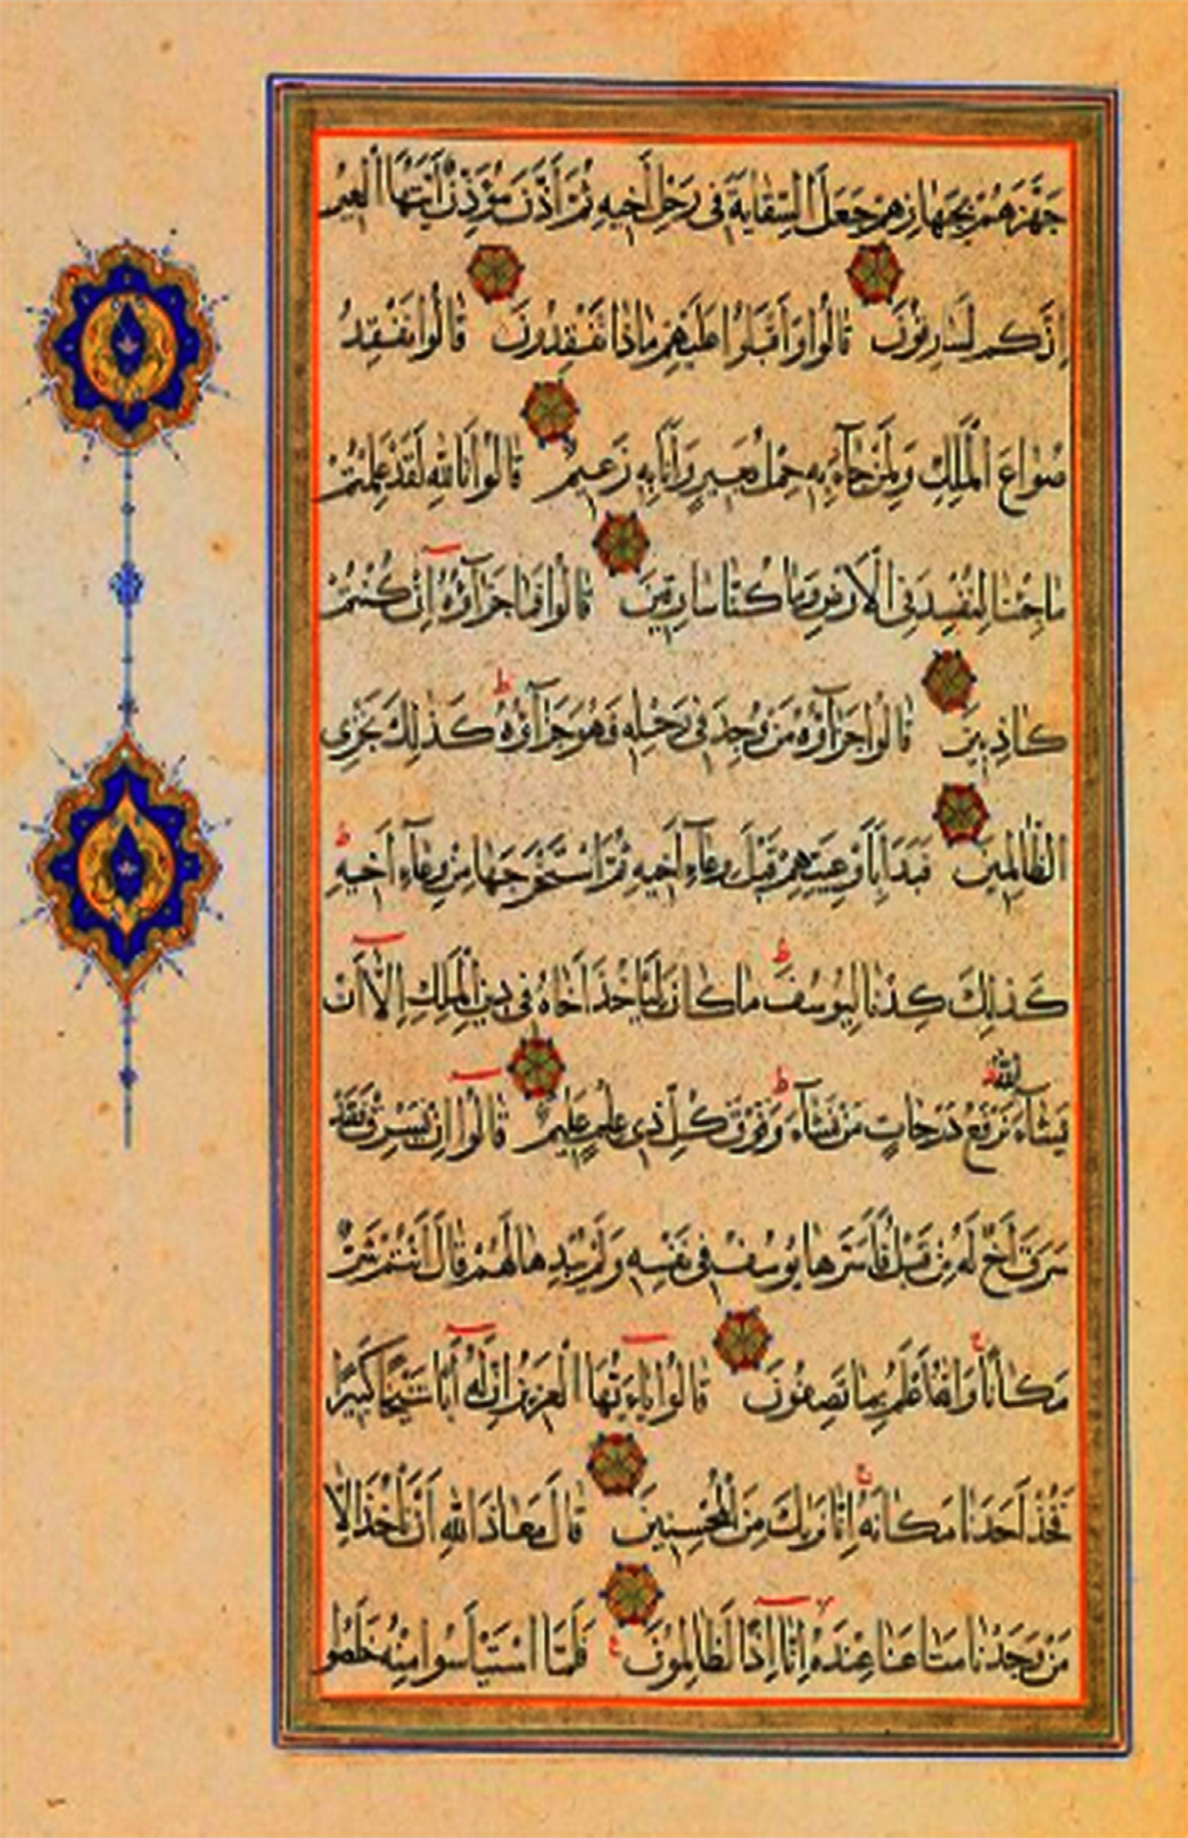 جَهَّزَهُمْ بِجَهَازِهِمْ جَعَلَ السِّقَايَةَ فِى رَحْلِ أَخِيهِ ثُمَّ أَذَّنَ مُؤَذِّنٌ أَيَّتُهَا الْعِيرُ
إِنَّكُمْ لَسَارِقُونَ قَالُوا وَأَقْبَلُوا عَلَيْهِمْ مَاذَا تَفْقِدُونَ قَالُوا نَفْقِدُ
صُوَاعَ الْمَلِكِ وَلِمَنْ جَآءَ بِهِ حِمْلُ بَعِيرٍ وَأَنَا بِهِ زَعِيمٌ قَالُوا تَاللّٰهِ لَقَدْ عَلِمْتُمْ
مَا جِئْنَا لِنُفْسِدَ فِى الْأَرْضِ وَمَا كُنَّا سَارِقِينَ قَالُوا فَمَا جَزَآؤُهُ إِنْ كُنْتُمْ
كَاذِبِينَ قَالُوا جَزَآؤُهُ مَنْ وُجِدَ فِى رَحْلِهِ فَهُوَ جَزَآؤُهُ ط كَذٰلِكَ نَجْزِى
الظَّالِمِينَ فَبَدَأَ بِأَوْعِيَتِهِمْ قَبْلَ وِعَآءِ أَخِيهِ ثُمَّ اسْتَخْرَجَهَا مِنْ وِعَآءِ أَخِيهِ ط
كَذٰلِكَ كِدْنَا لِيُوسُفَ ط مَا كَانَ لِيَأْخُذَ أَخَاهُ فِى دِينِ الْمَلِكِ إِلَّا أَنْ
يَشَآءَ اللّٰهُ ط نَرْفَعُ دَرَجَاتٍ مَنْ نَشَآءُ ط وَفَوْقَ كُلِّ ذِى عِلْمٍ عَلِيمٌ قَالُوا إِنْ يَسْرِقْ فَقَدْ
سَرَقَ أَخٌ لَهُ مِنْ قَبْلُ فَأَسَرَّهَا يُوسُفُ فِى نَفْسِهِ وَلَمْ يُبْدِهَا لَهُمْ قَالَ أَنْتُمْ شَرٌّ
مَكَانًا ج وَاللّٰهُ أَعْلَمُ بِمَا تَصِفُونَ قَالُوا يَاءَيُّهَا الْعَزِيزُ إِنَّ لَهُ أَبًا شَيْخًا كَبِيرًا
فَخُذْ أَحَدَنَا مَكَانَهُ ج إِنَّا نَرٰيكَ مِنَ الْمُحْسِنِينَ قَالَ مَعَاذَ اللّٰهِ أَنْ نَأْخُذَ إِلَّا
مَنْ وَجَدْنَا مَتَاعَنَا عِنْدَهُ إِنَّا إِذًا لَظَالِمُونَ ع فَلَمَّا اسْتَيْأَسُوا مِنْهُ خَلَصُوا